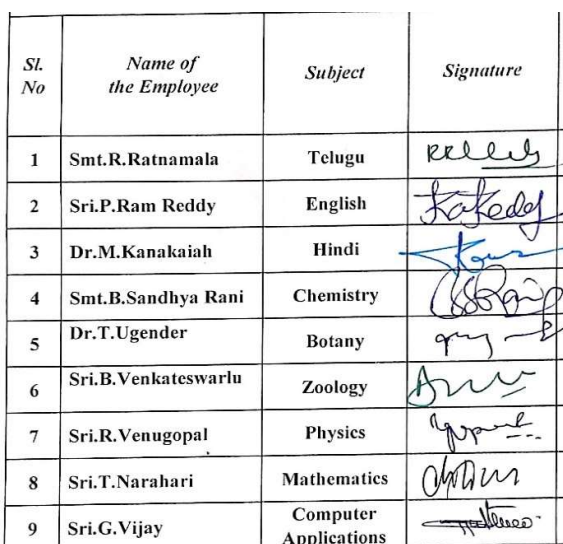 Sl. No Name of the Employee Subject Signature
1 Smt.R.Ratnamala Telugu
2 Sri.P.Ram Reddy English
3 Dr.M.Kanakaiah Hindi
4 Smt.B.Sandhya Rani Chemistry
5 Dr.T.Ugender Botany
6 Sri.B.Venkateswarlu Zoology
7 Sri.R.Venugopal Physics
8 Sri.T.Narahari Mathematics
9 Sri.G.Vijay Computer Applications